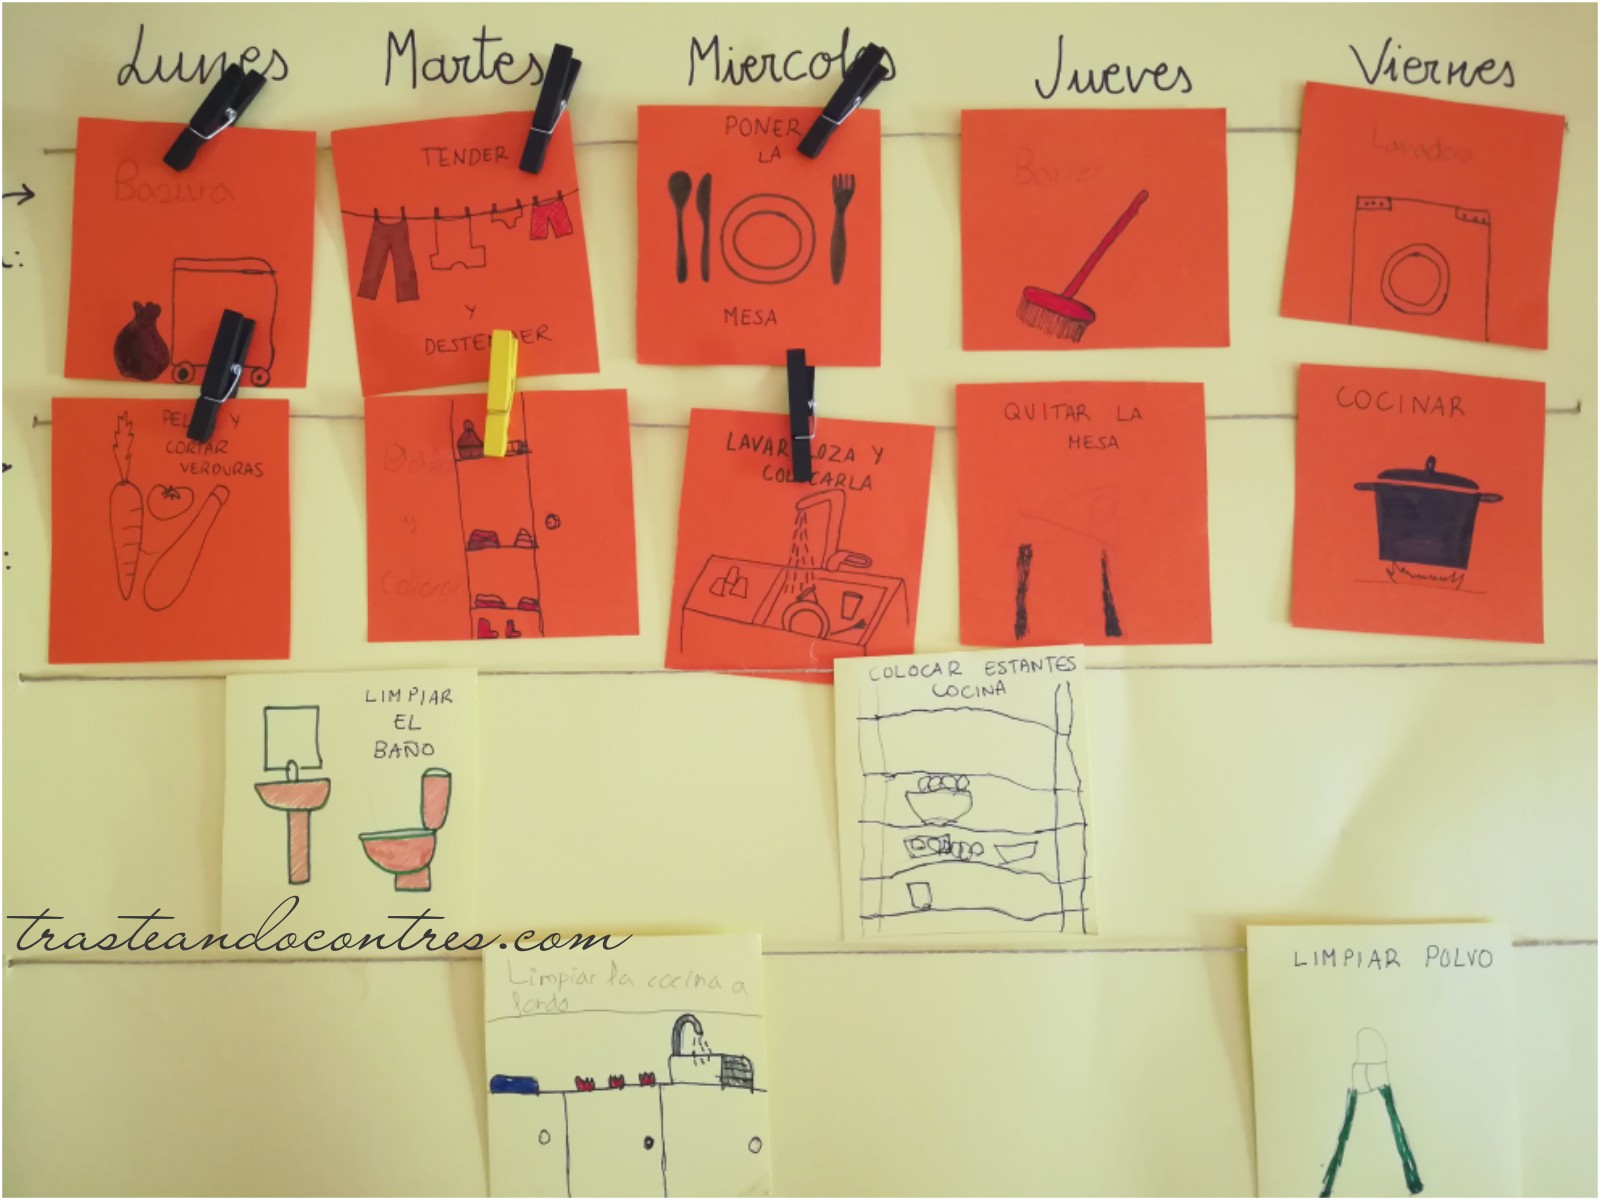 Lunes
Martes
Miercoles
Jueves
Viernes
Basura
TENDER
Y
DESTENDER
PONER
LA
MESA
Barrer
Lavadora
Y
CORTAR
VERDURAS
y
Colocar
LAVAR LOZA Y
COLOCARLA
QUITAR LA
MESA
COCINAR
LIMPIAR
EL
BAÑO
COLOCAR ESTANTES
COCINA
trasteandocontres.com
Limpiar la cocina a
fondo
LIMPIAR POLVO